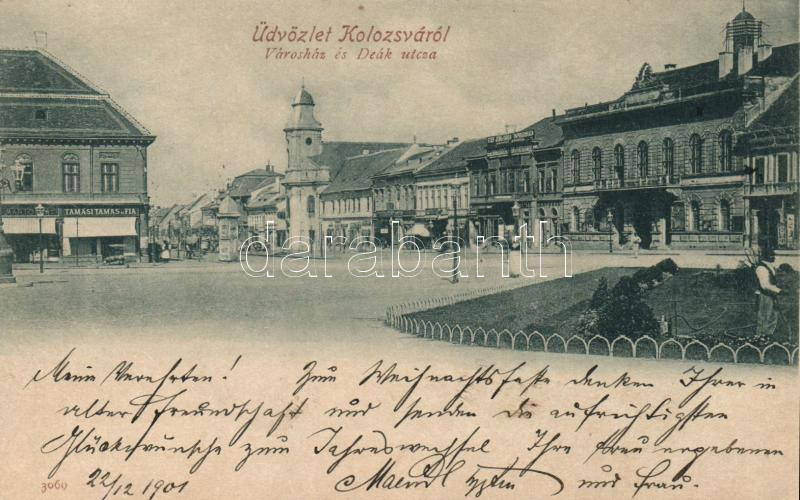 Üdvözlet Kolozsváról
Városház és Deák utcza
TAMÁSI TAMÁS és FIA
darabanth
Meine Verehrten! Zum Weihnachtsfeste denken Ihrer in
alter Freundschaft und senden die aufrichtigsten
Glückwünsche zum Jahreswechsel Ihre treu ergebenen
22/12 1901 und Frau.
3069